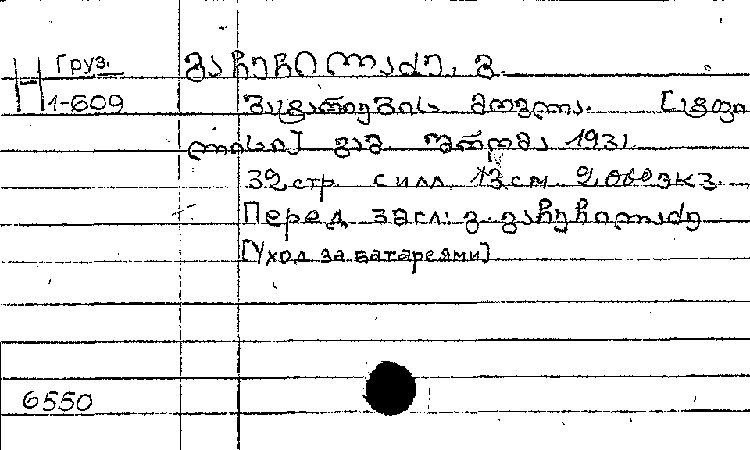 Груз. გაჩეჩილაძე, გ.
Н 1-609 ბატარიების მოვლა. [ტფი
ლისი] გამ. შრომა 1931.
32 стр. с илл. 13 см. 2000 экз.
Перед загл: გ. გაჩეჩილაძე
[Уход за батареями]
6550